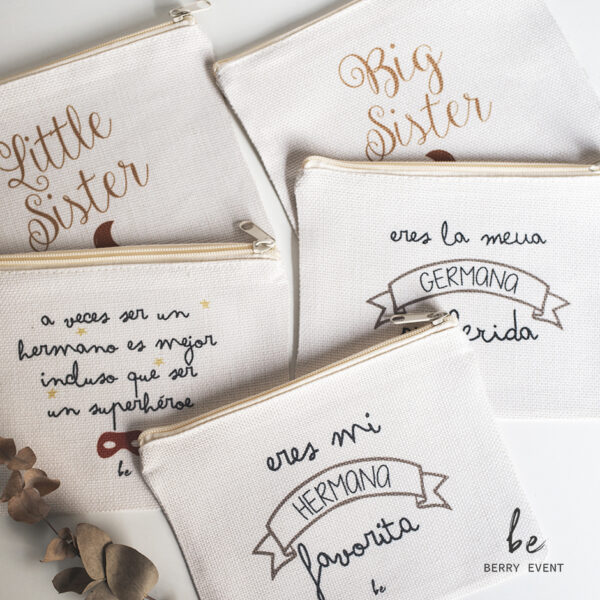 Little
Sister
Big
Sister
eres la meua
GERMANA
a veces ser un
hermano es mejor
incluso que ser
un superhéroe
be
eres mi
HERMANA
favorita
be
be
BERRY EVENT